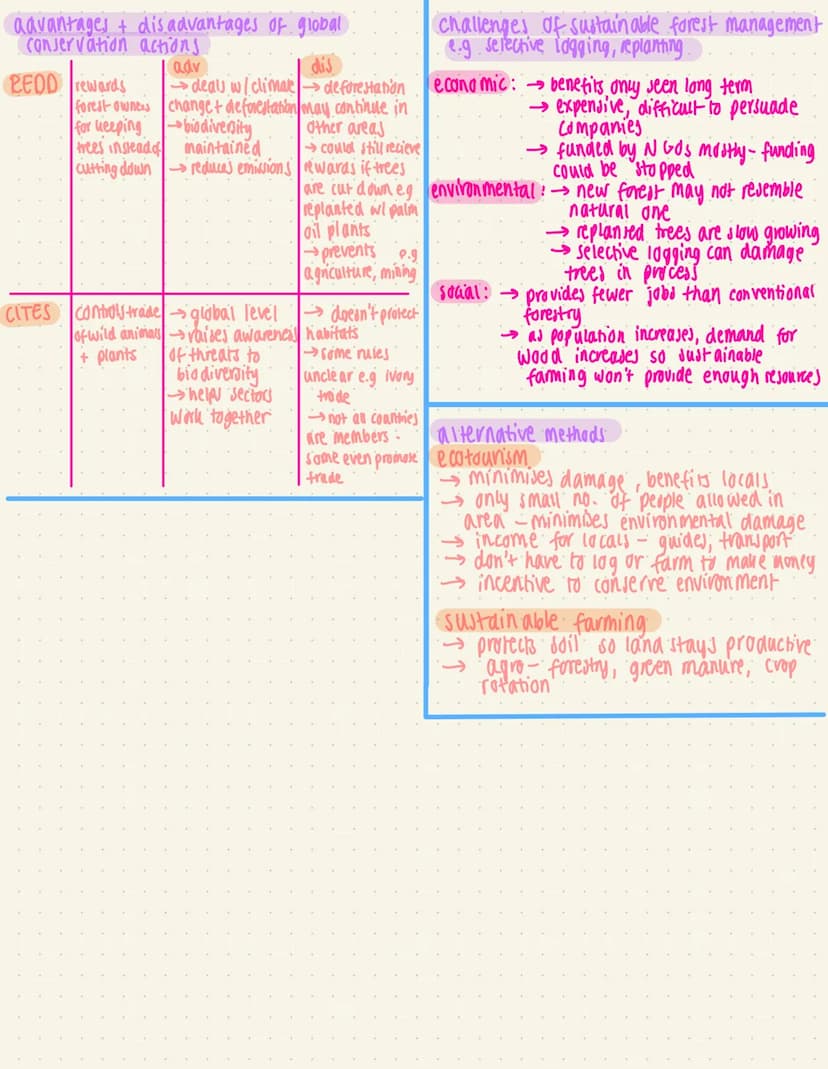 advantages + disadvantages of global
conservation actions
adv
dis
REDD
rewards
forest owners
for keeping
trees instead of
cutting down
→ deals w/ climate
change + deforestation
→ biodiversity
maintained
→ reduces emissions
→ deforestation
may continue in
other areas
→ could still recieve
rewards if trees
are cut down e.g
replanted w/ palm
oil plants
→ prevents e.g
agriculture, mining
CITES
controls trade
of wild animals
+ plants
→ global level
→ raises awareness
of threats to
biodiversity
→ helps sectors
work together
→ doesn't protect
habitats
→ some rules
unclear e.g ivory
trade
→ not all countries
are members -
some even promote
trade
challenges of sustainable forest management
e.g selective logging, replanting
economic: → benefits only seen long term
→ expensive, difficult to persuade
companies
→ funded by NGOs mostly - funding
could be stopped
environmental: → new forest may not resemble
natural one
→ replanted trees are slow growing
→ selective logging can damage
trees in process
social: → provides fewer jobs than conventional
forestry
→ as population increases, demand for
wood increases so sustainable
farming won't provide enough resources
alternative methods
ecotourism
→ minimises damage, benefits locals
→ only small no. of people allowed in
area - minimises environmental damage
→ income for locals - guides, transport
→ don't have to log or farm to make money
→ incentive to conserve environment
sustainable farming
→ protects soil so land stays productive
→ agro-forestry, green manure, crop
rotation